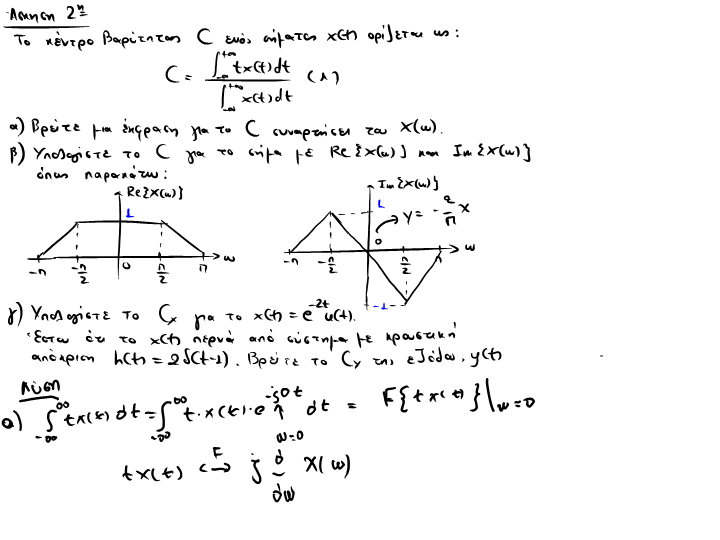 Άσκηση 2η
Το κέντρο βαρύτητας C ενός σήματος x(t) ορίζεται ως:
C = ∫_{-∞}^{+∞} t x(t) dt / ∫_{-∞}^{+∞} x(t) dt (1)
α) Βρείτε μια έκφραση για το C συναρτήσει του X(ω).
β) Υπολογίστε το C για το σήμα με Re{X(ω)} και Im{X(ω)}
όπως παρακάτω:
Re{X(ω)}
1
-π -π/2 0 π/2 π ω
Im{X(ω)}
1
y = -2/π x
-π -π/2 0 π/2 π ω
-1
γ) Υπολογίστε το Cx για το x(t) = e^{-2t} u(t).
Έστω ότι το x(t) περνά από σύστημα με κρουστική
απόκριση h(t) = 2δ(t-1). Βρείτε το Cy της εξόδου y(t)
Λύση
α) ∫_{-∞}^{∞} t x(t) dt = ∫_{-∞}^{∞} t · x(t) · e^{-j0t} dt = F{t x(t)}|_{ω=0}
↑
ω=0
t x(t) ⟷^F j d/dω X(ω)